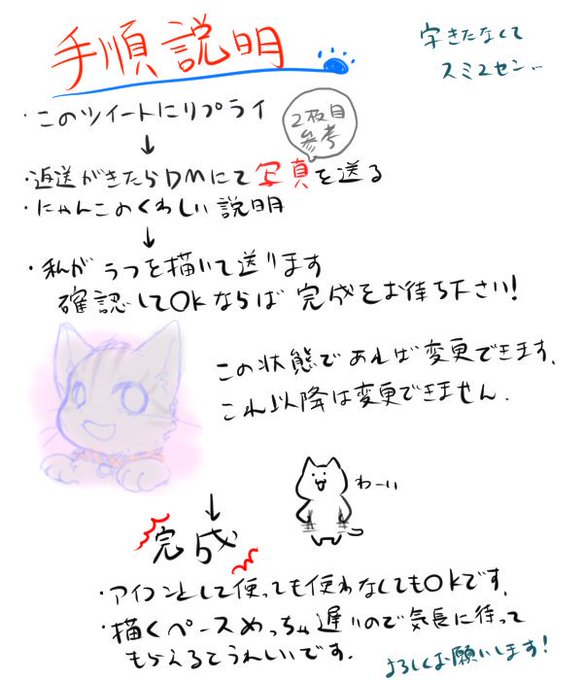 手順説明
字きたなくて
スミマセン…
・このツイートにリプライ
2枚目
参考
↓
・返送がきたらDMにて写真を送る
・にゃんこのくわしい説明
↓
・私がラフを描いて送ります
確認してOKならば完成をお待ち下さい!
この状態であれば変更できます.
これ以降は変更できません.
↓
わーい
完成
・アイコンとして使っても使わなしてもOKです.
・描くペースめっちゃ遅いので気長に待って
もらえるとうれしいです.
よろしくお願いします!